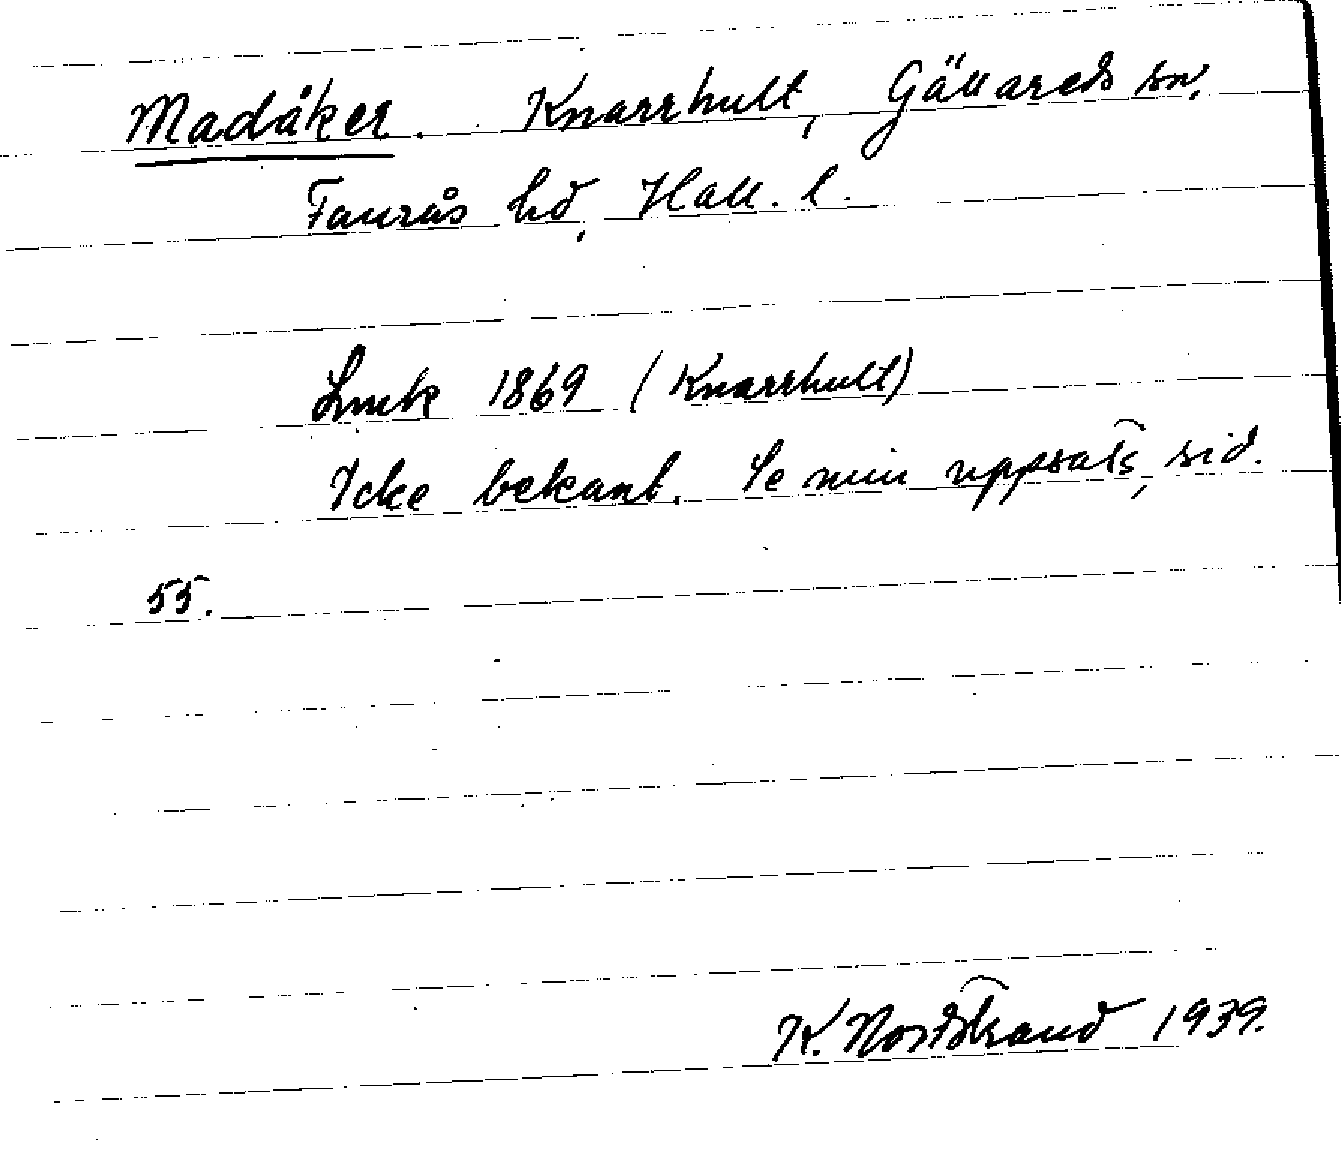 Madåker. Knarrhult, Gällareds sn,
Faurås hd, Hall. l.
Lmk 1869 (Knarrhult)
Icke bekant. Se min uppsats, sid.
55.
K. Nordstrand 1939.